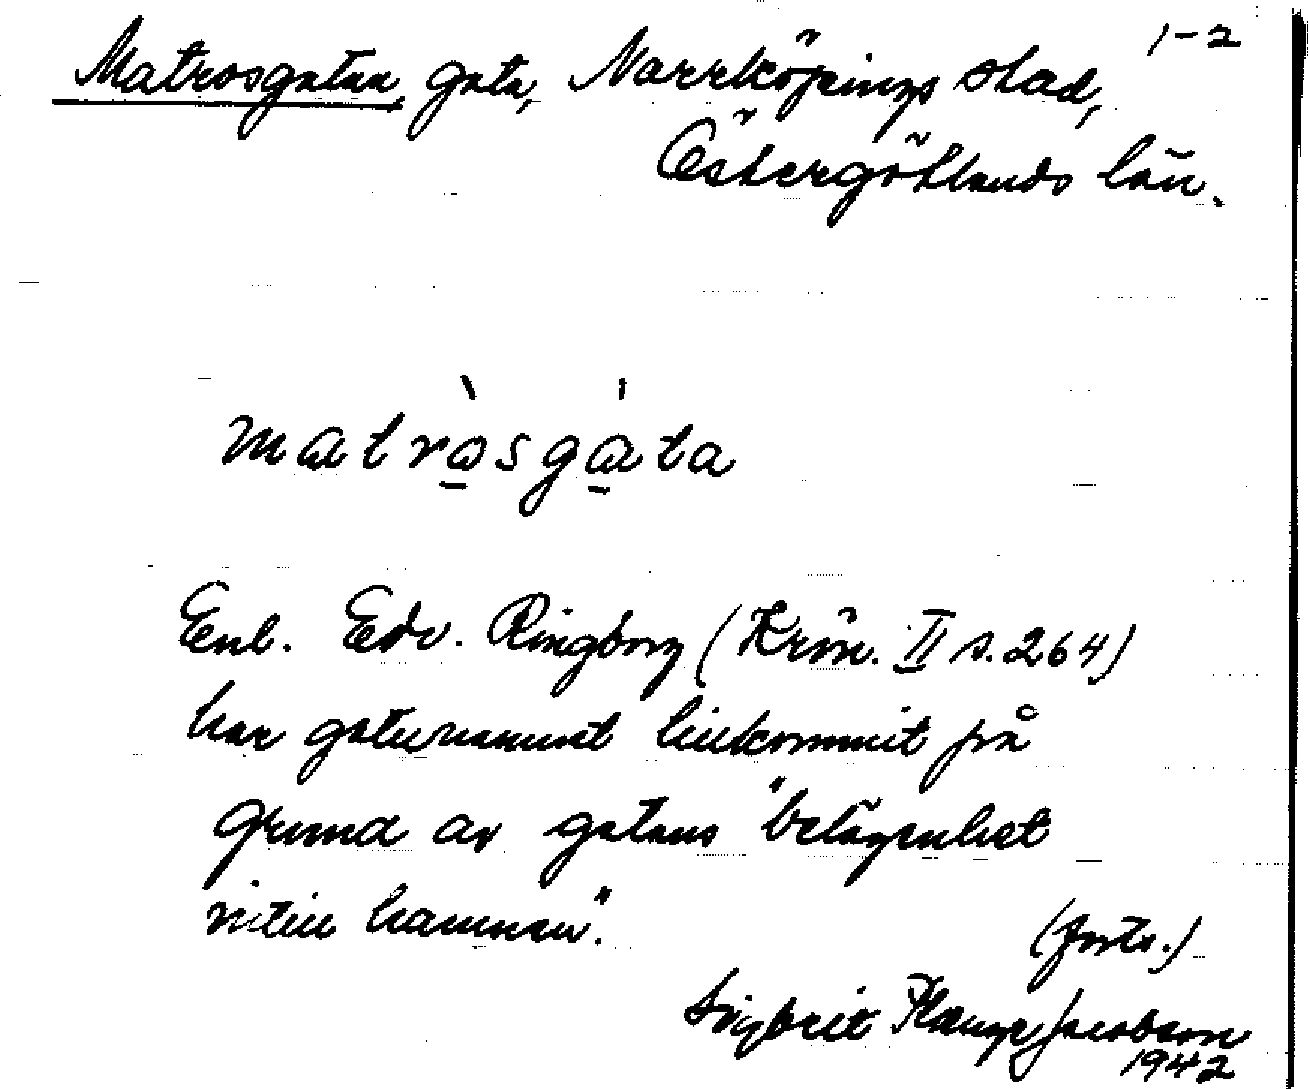 1-2
Matrosgatan, gata, Norrköpings stad,
Östergötlands län.
matròsgáta
Enl. Edv. Ringborg (Krön. II s. 264)
har gatunamnet tillkommit på
grund av gatans "belägenhet
intill hamnen".
(forts.)
Sigbrit Plænge Jacobson
1942